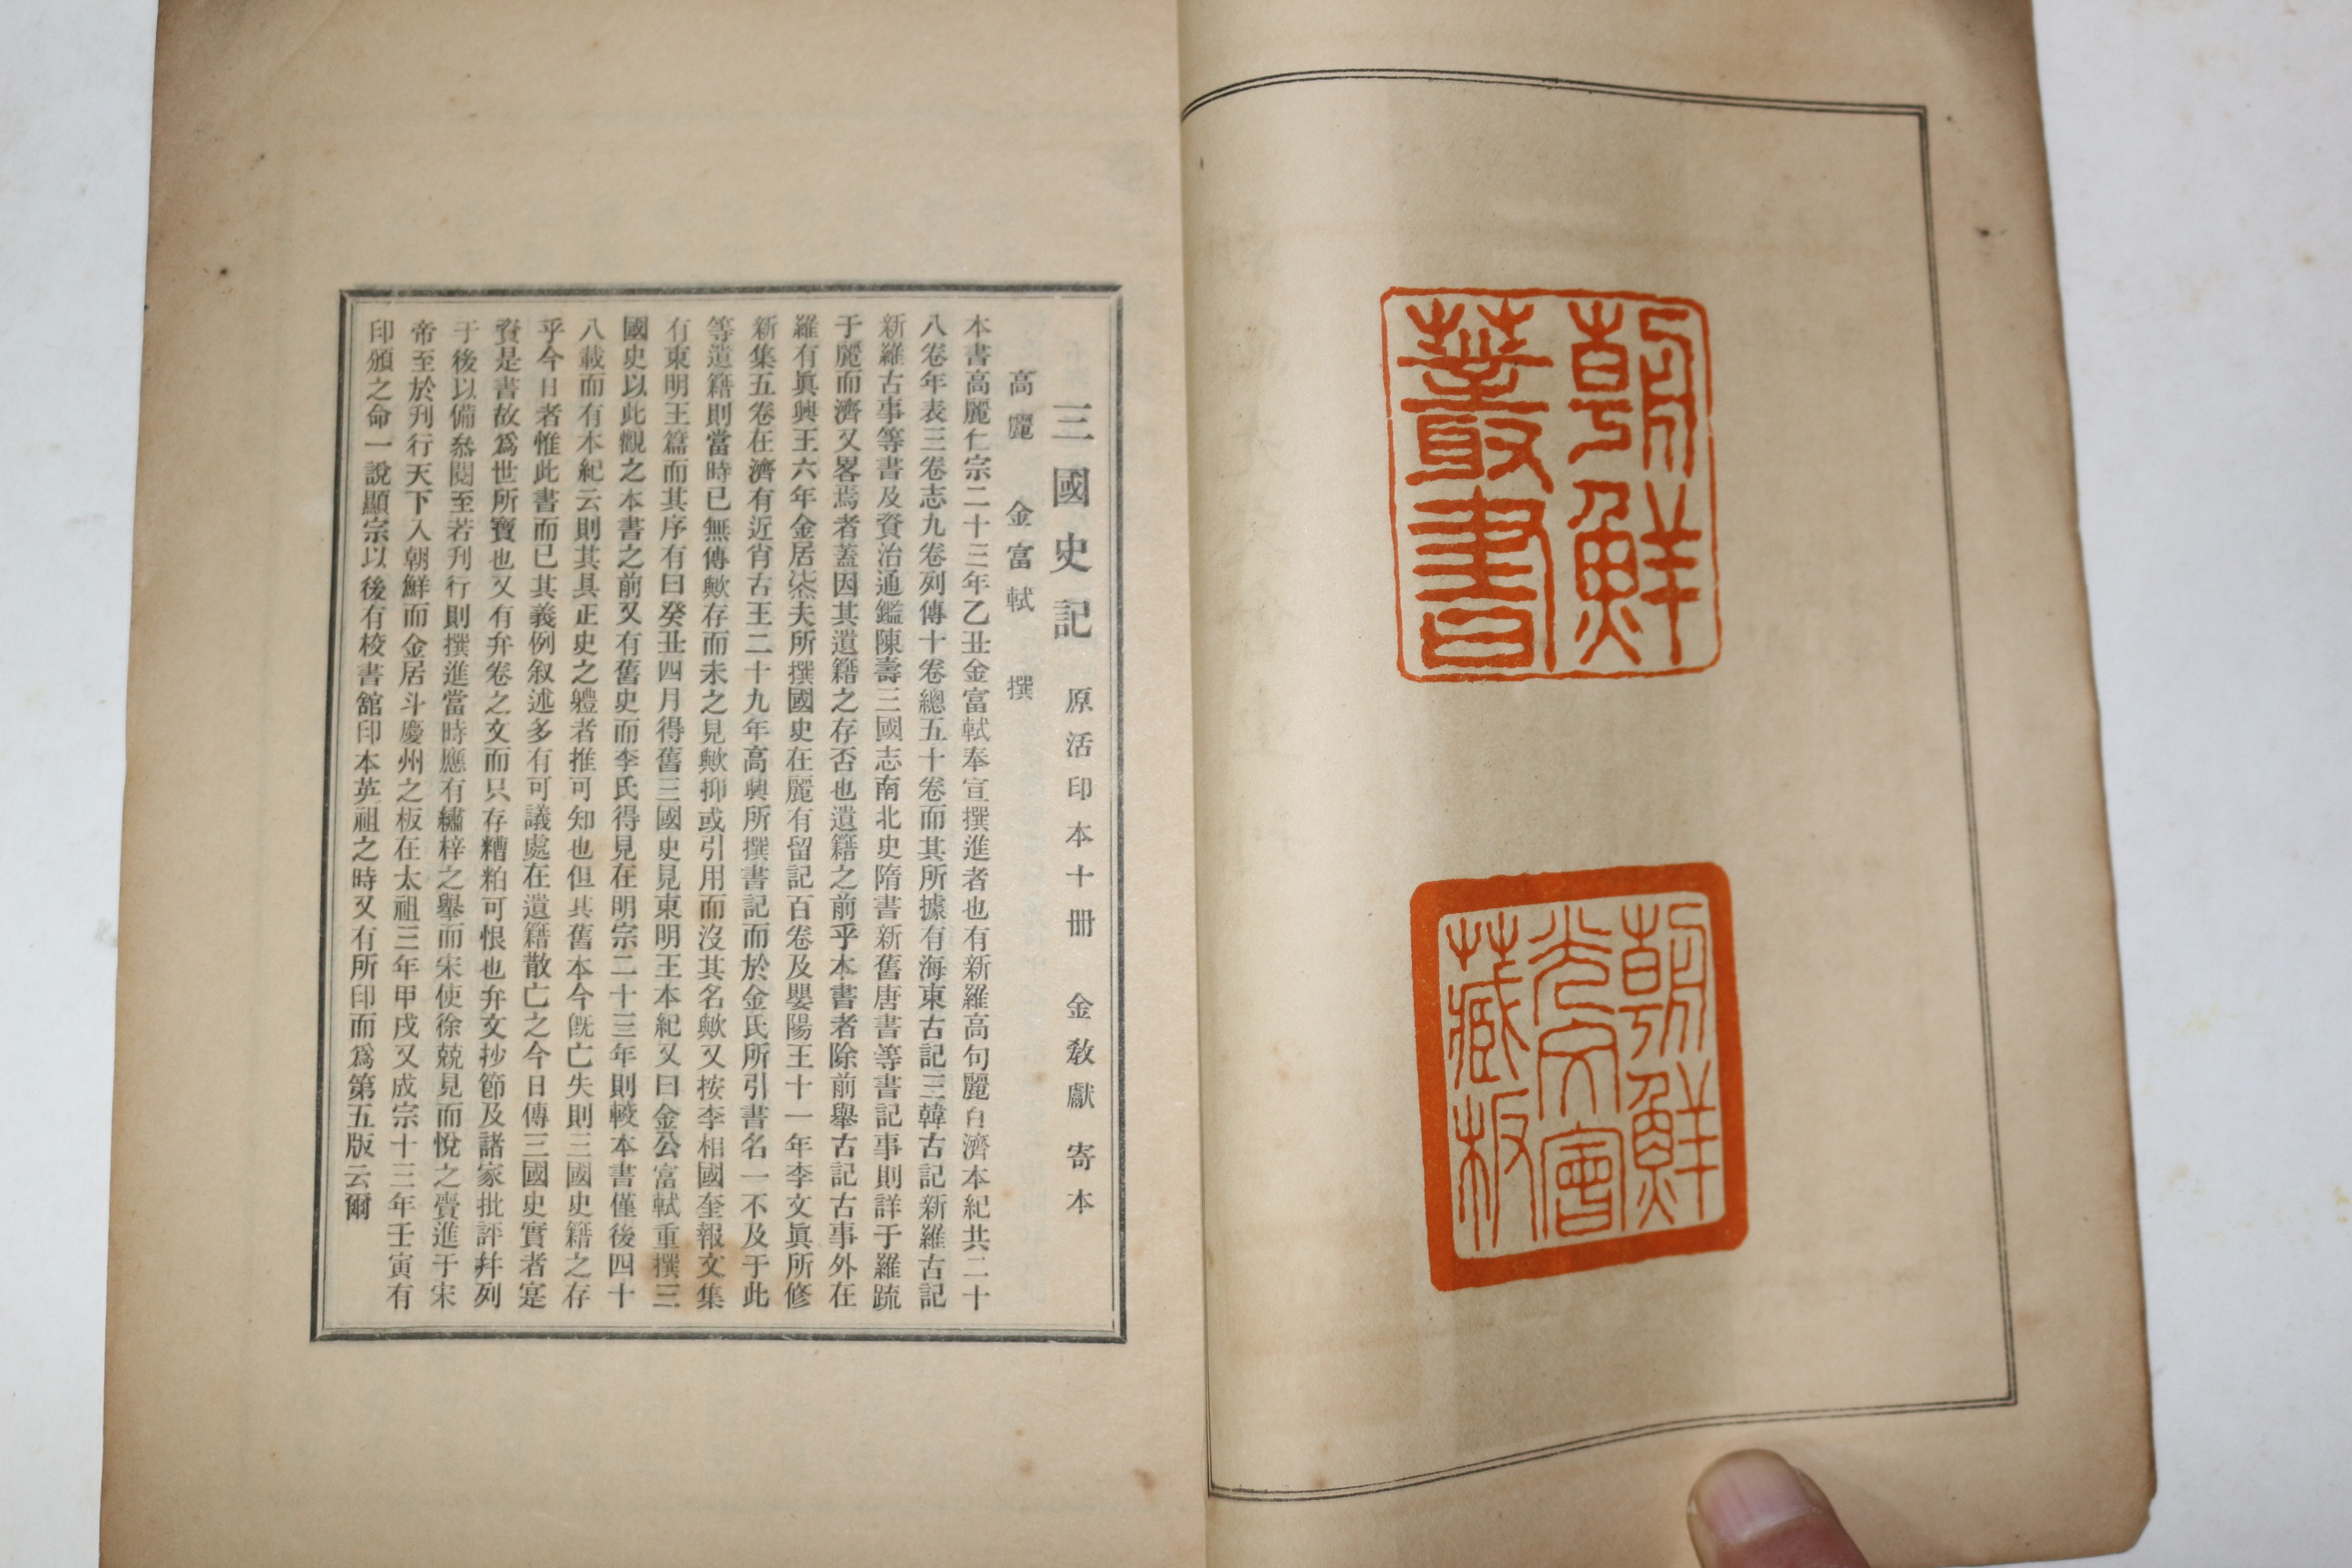 朝鮮
叢書
朝鮮
光文會
藏板
三國史記 原活印本十冊 金教獻 寄本
高麗 金富軾 撰
本書高麗仁宗二十三年乙丑金富軾奉宣撰進者也有新羅高句麗百濟本紀共二十
八卷年表三卷志九卷列傳十卷總五十卷而其所據有海東古記三韓古記新羅古記
新羅古事等書及資治通鑑陳壽三國志南北史隋書新舊唐書等書記事則詳于羅䟽
于麗而濟又畧焉者蓋因其遺籍之存否也遺籍之前乎本書者除前舉古記古事外在
羅有眞興王六年金居柒夫所撰國史在麗有留記百卷及嬰陽王十一年李文眞所修
新集五卷在濟有近肖古王二十九年高興所撰書記而於金氏所引書名一不及于此
等遺籍則當時已無傳歟存而未之見歟抑或引用而沒其名歟又按李相國奎報文集
有東明王篇而其序有曰癸丑四月得舊三國史見東明王本紀又曰金公富軾重撰三
國史以此觀之本書之前又有舊史而李氏得見在明宗二十三年則較本書僅後四十
八載而有本紀云則其具正史之軆者推可知也但其舊本今旣亡失則三國史籍之存
乎今日者惟此書而已其義例叙述多有可議處在遺籍散亡之今日傳三國史實者寔
賚是書故爲世所寶也又有弁卷之文而只存糟粕可恨也弁文抄節及諸家批評幷列
于後以備叅閱至若刋行則撰進當時應有繡梓之舉而宋使徐兢見而悅之賷進于宋
帝至於刋行天下入朝鮮而金居斗慶州之板在太祖三年甲戌又成宗十三年壬寅有
印頒之命一說顯宗以後有校書舘印本英祖之時又有所印而爲第五版云爾